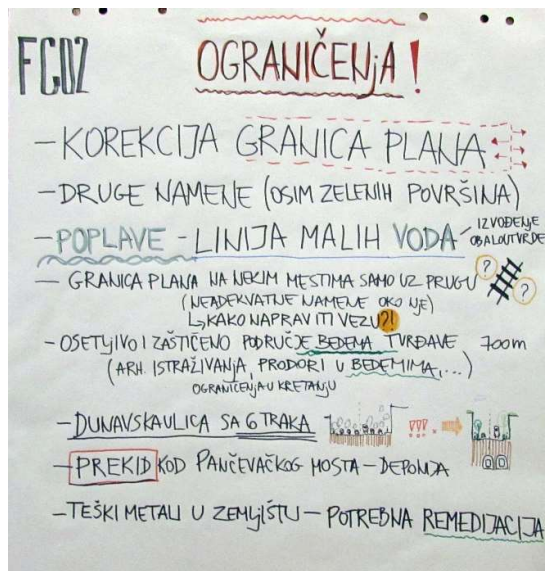 FG02
OGRANIČENjA!
- KOREKCIJA GRANICA PLANA
- DRUGE NAMENE (OSIM ZELENIH POVRŠINA)
- POPLAVE - LINIJA MALIH VODA
IZVOĐENjE
OBALOUTVRDE
- GRANICA PLANA NA NEKIM MESTIMA SAMO UZ PRUGU ? ?
(NEADEKVATNE NAMENE OKO NjE)
↳ KAKO NAPRAVITI VEZU?!
- OSETLjIVO I ZAŠTIĆENO PODRUČJE BEDEMA TVRĐAVE 700m
(ARH. ISTRAŽIVANjA, PRODORI U BEDEMIMA,...)
OGRANIČENjA U KRETANjU
- DUNAVSKA ULICA SA 6 TRAKA
- PREKID KOD PANČEVAČKOG MOSTA - DEPONIJA
- TEŠKI METALI U ZEMLjIŠTU - POTREBNA REMEDIJACIJA